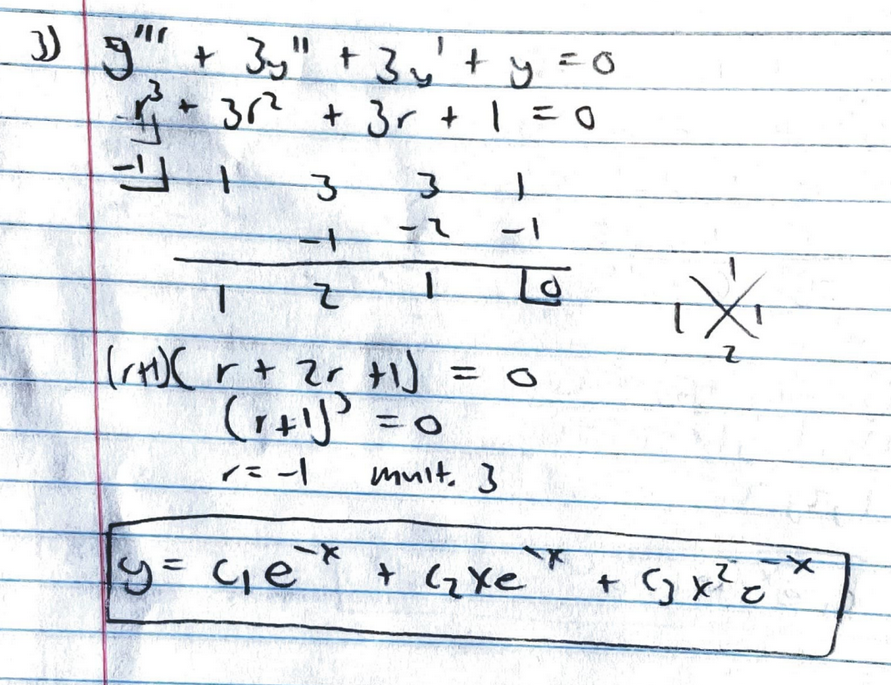 3) y''' + 3y'' + 3y' + y = 0
r³ + 3r² + 3r + 1 = 0
-1 | 1 3 3 1
-1 -2 -1
1 2 1 |0
1
1 1
2
(r+1)( r + 2r +1) = 0
(r+1)³ = 0
r = -1 mult. 3
y = c₁e⁻ˣ + c₂xe⁻ˣ + c₃x²e⁻ˣ